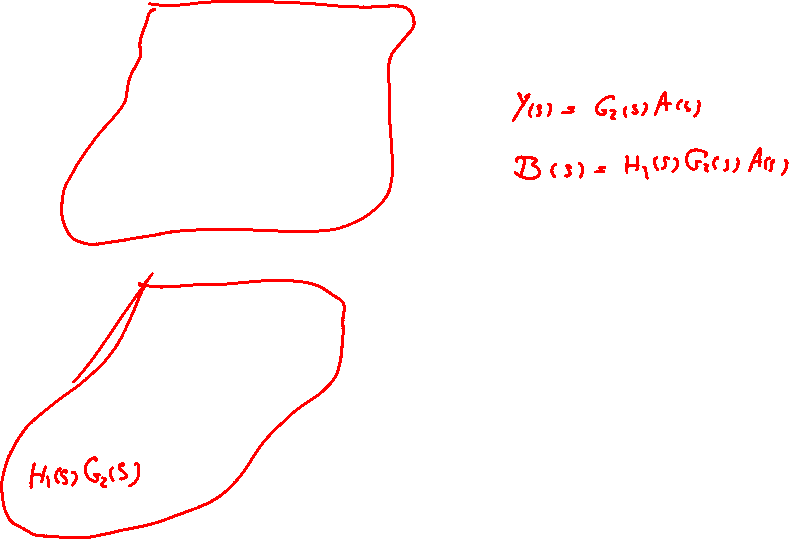 Y(s) = G₂(s) A(s)
B(s) = H₁(s) G₂(s) A(s)
H₁(s) G₂(s)